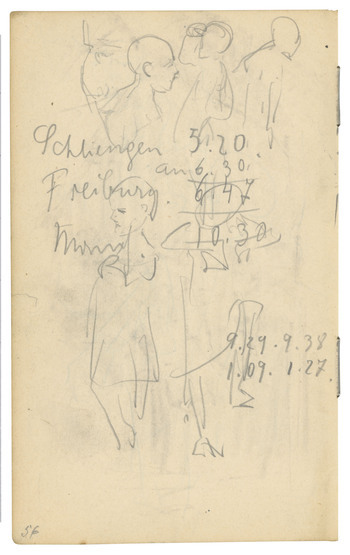 Schliengen 5.20.
an 6.30.
Freiburg. 6.47
10.30
9.29. 9.38
1.09. 1.27.
56